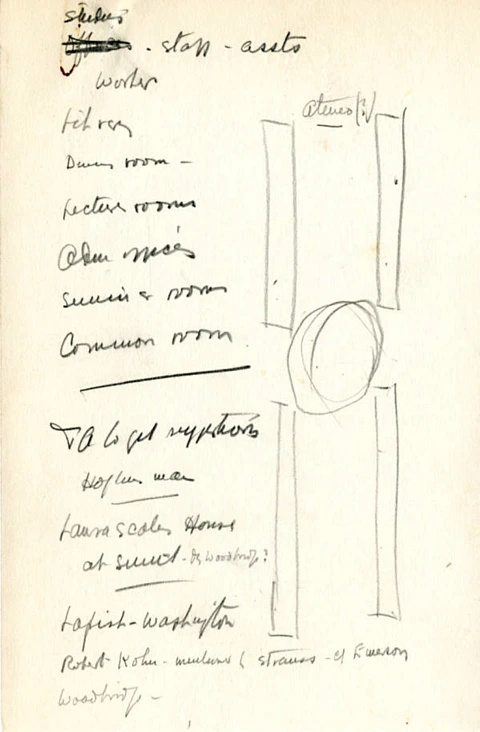 studies
- staff - assts
worker
Library
Dining room -
Lecture rooms
Adm offices
Seminar rooms
Common room
TA to get suggestions
Hopkins man
Laura Scales House
at Smith - by Woodbridge?
- Washington
Robert Kohn - mentioned (Strauss - cf Emerson
Woodbridge -